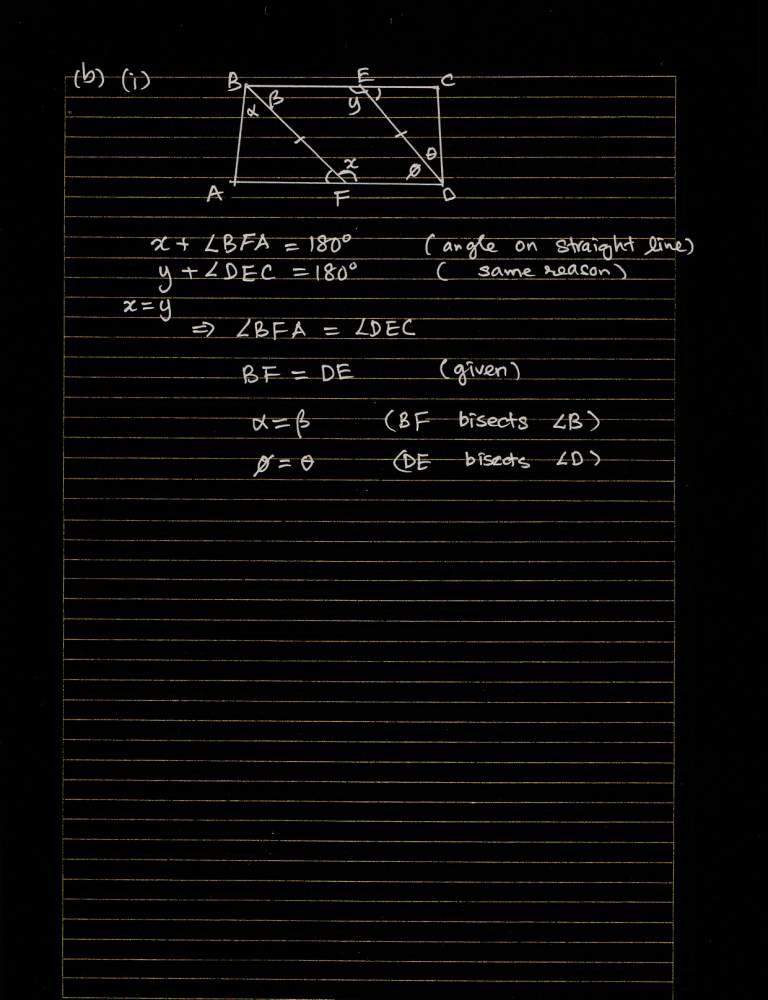 (b) (i)
B E C
α β y
θ
x φ
A F D
x + ∠BFA = 180° (angle on straight line)
y + ∠DEC = 180° (same reason)
x = y
⇒ ∠BFA = ∠DEC
BF = DE (given)
α = β (BF bisects ∠B)
φ = θ (DE bisects ∠D)